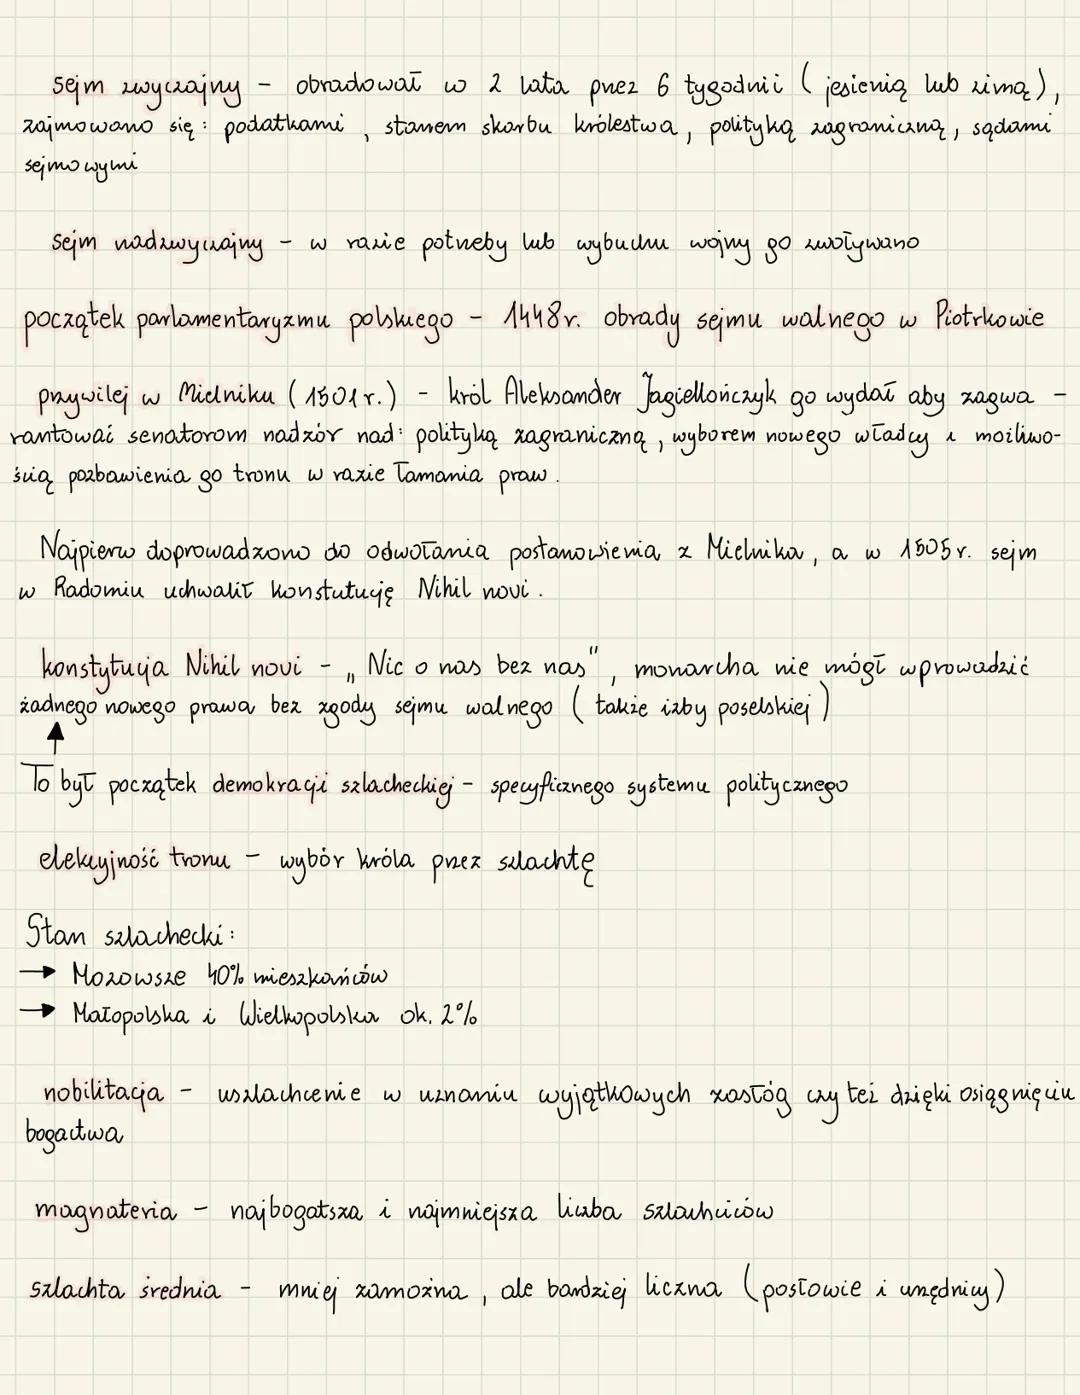 sejm zwyczajny - obradował w 2 lata przez 6 tygodnii ( jesienią lub zimą),
zajmowano się: podatkami, stanem skarbu królestwa, polityką zagraniczną, sądami
sejmowymi
sejm nadzwyczajny - w razie potrzeby lub wybuchu wojny go zwoływano
początek parlamentaryzmu polskiego - 1448r. obrady sejmu walnego w Piotrkowie
przywilej w Mielniku (1501r.) - król Aleksander Jagiellończyk go wydał aby zagwa -
rantować senatorom nadzór nad: polityką zagraniczną, wyborem nowego władcy i możliwo-
ścią pozbawienia go tronu w razie łamania praw.
Najpierw doprowadzono do odwołania postanowienia z Mielnika, a w 1505r. sejm
w Radomiu uchwalił konstutucję Nihil novi.
konstytucja Nihil novi - „Nic o nas bez nas", monarcha nie mógł wprowadzić
żadnego nowego prawa bez zgody sejmu walnego ( także izby poselskiej )
To był początek demokracji szlacheckiej - specyficznego systemu politycznego
elekcyjność tronu - wybór króla przez szlachtę
Stan szlachecki:
→ Mozowsze 40% mieszkańców
→ Małopolska i Wielkopolska ok. 2%
nobilitacja - uszlachcenie w uznaniu wyjątkowych zasług czy też dzięki osiągnięciu
bogactwa
magnateria - najbogatsza i najmniejsza liczba szlachciców
szlachta średnia - mniej zamożna, ale bardziej liczna (posłowie i urzędnicy)